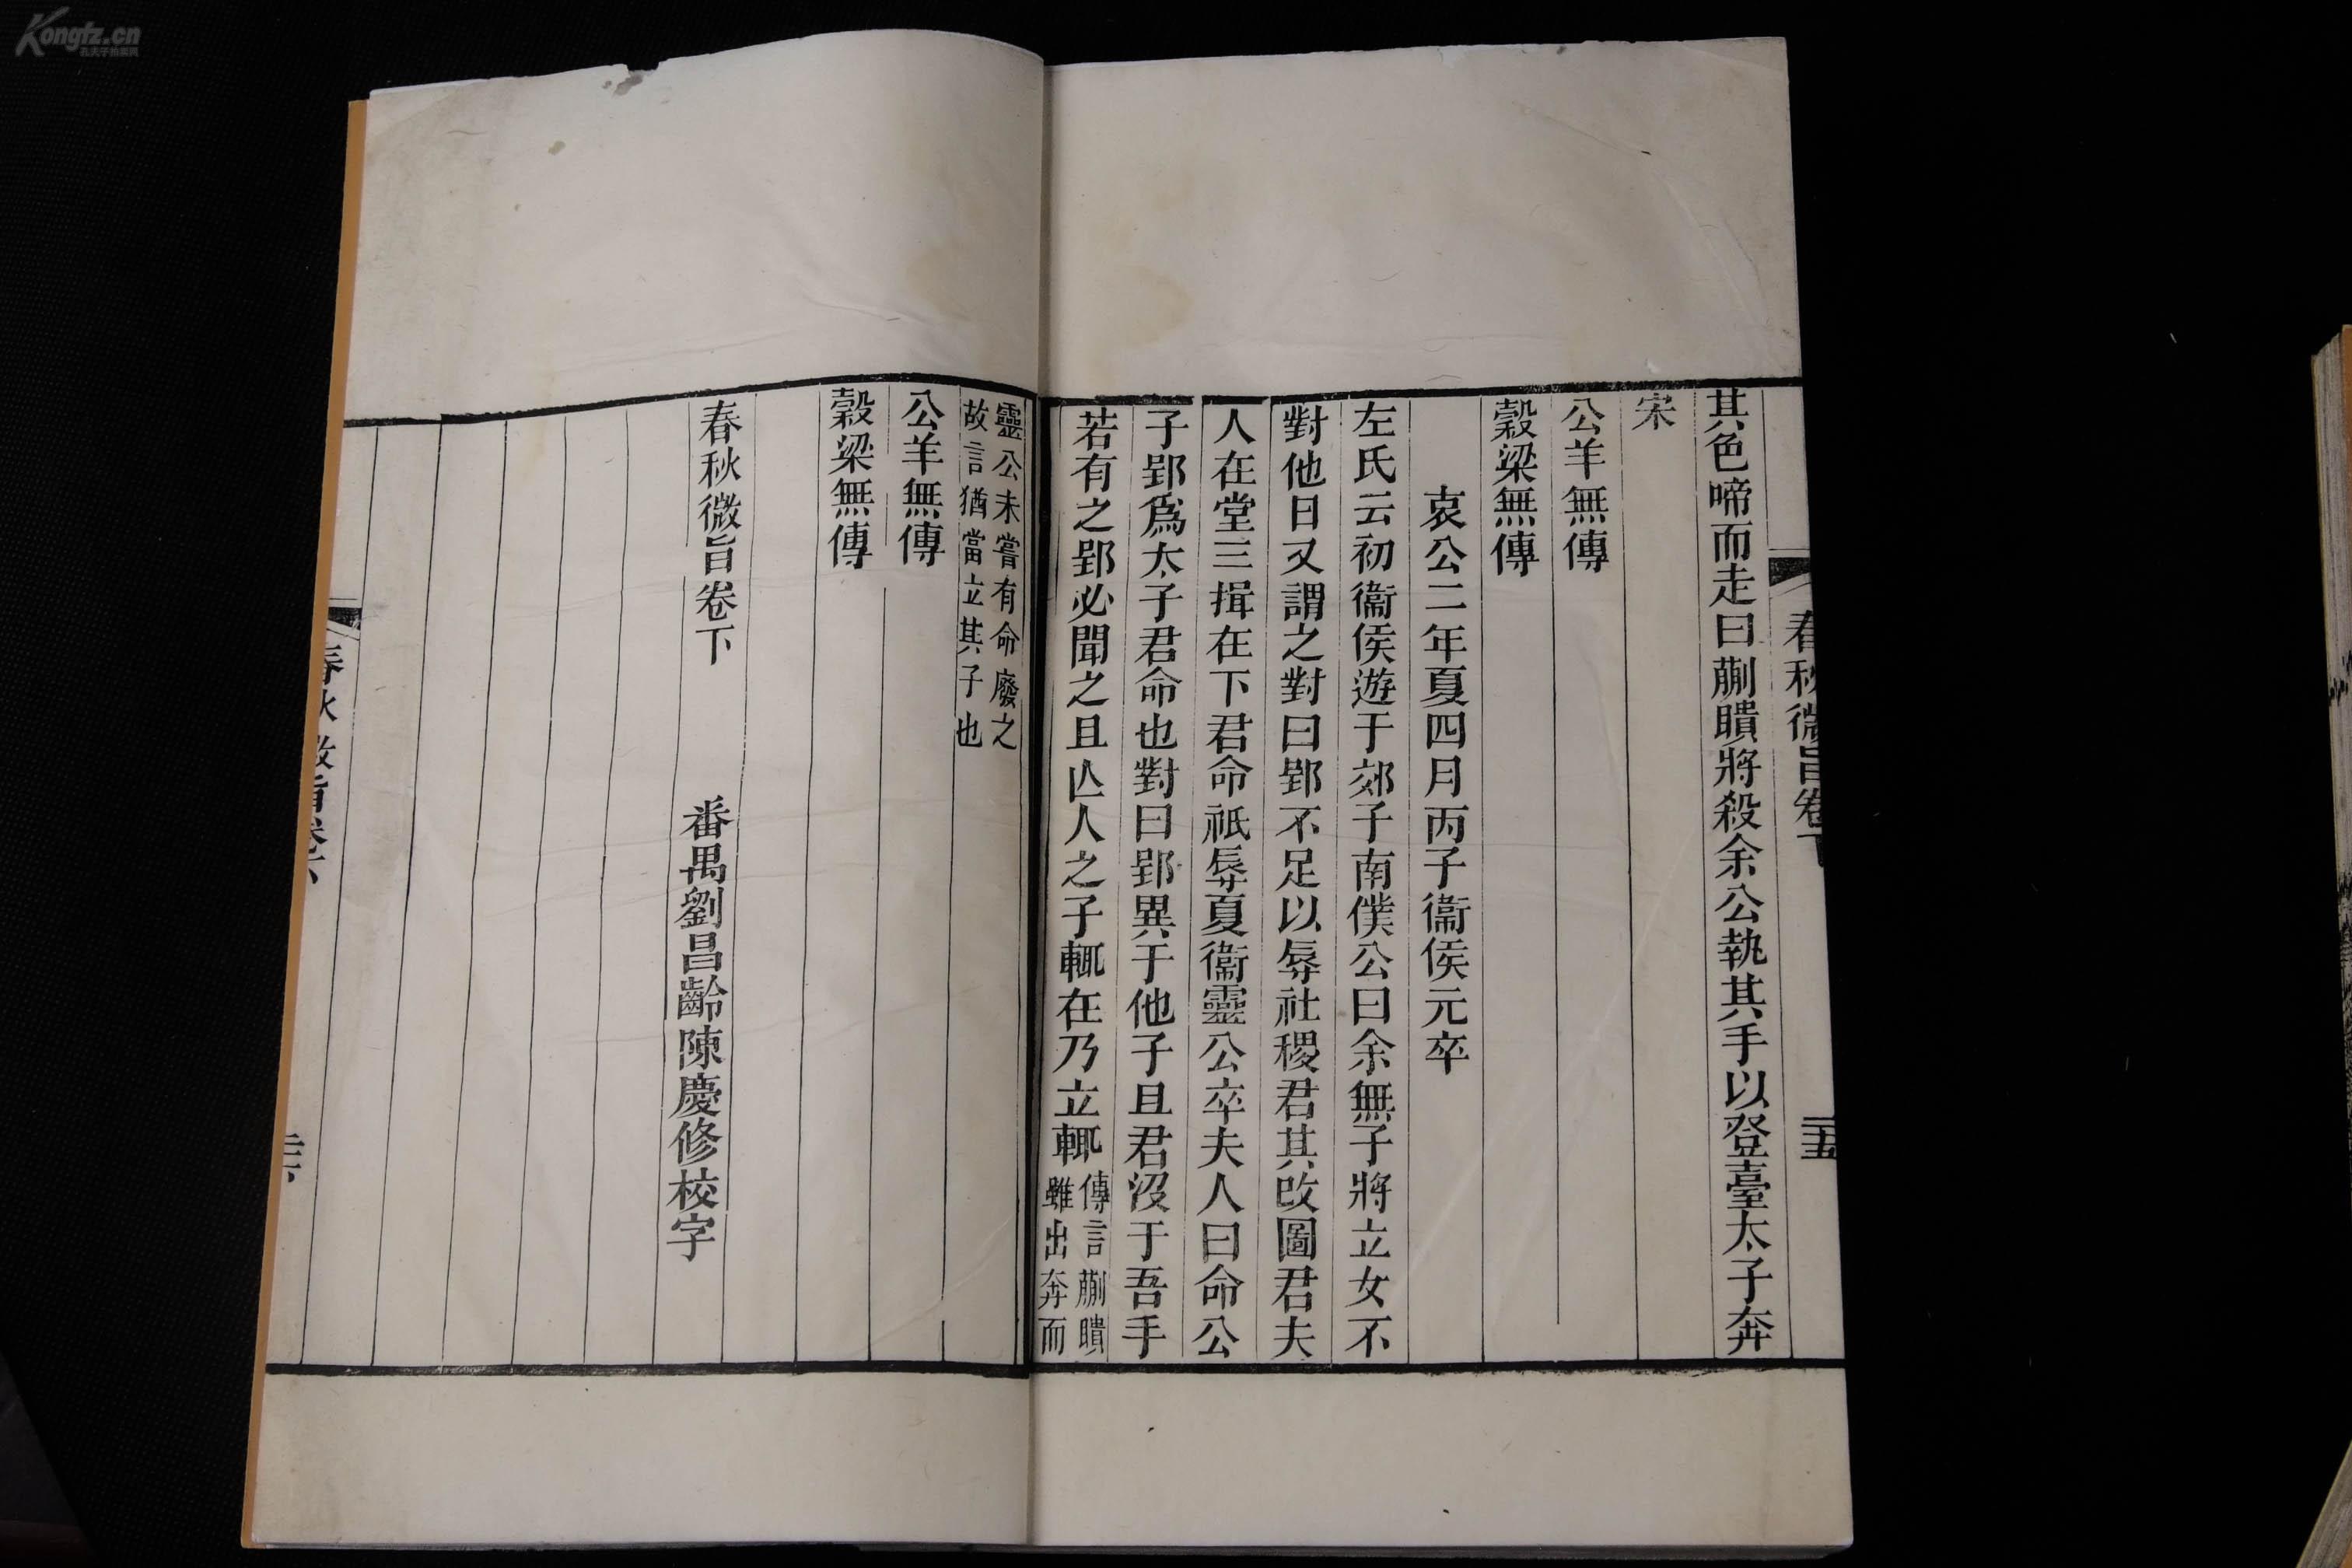 春秋微旨卷下
二十五
其色啼而走曰蒯聵將殺余公執其手以登臺太子奔
宋
公羊無傳
穀梁無傳
哀公二年夏四月丙子衞侯元卒
左氏云初衞侯遊于郊子南僕公曰余無子將立女不
對他日又謂之對曰郢不足以辱社稷君其改圖君夫
人在堂三揖在下君命祇辱夏衞靈公卒夫人曰命公
子郢爲太子君命也對曰郢異于他子且君没于吾手
若有之郢必聞之且亾人之子輒在乃立輒傳言蒯聵
雖出奔而
靈公未嘗有命廢之
故言猶當立其子也
公羊無傳
穀梁無傳
春秋微旨卷下 番禺劉昌齡陳慶修校字
Kongfz.cn
孔夫子拍卖网